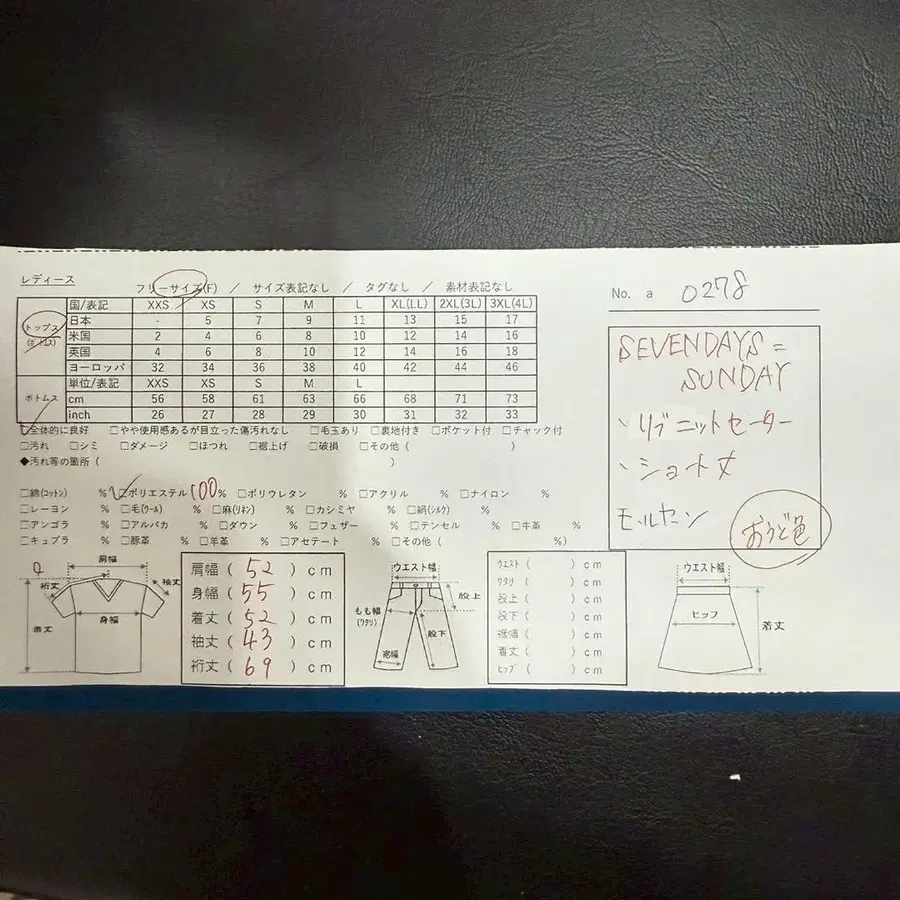 レディース
フリーサイズ(F) / サイズ表記なし / タグなし / 素材表記なし
No. a 0278
国/表記 XXS XS S M L XL(LL) 2XL(3L) 3XL(4L)
トップス
(ボトムス)
日本 - 5 7 9 11 13 15 17
米国 2 4 6 8 10 12 14 16
英国 4 6 8 10 12 14 16 18
ヨーロッパ 32 34 36 38 40 42 44 46
ボトムス
単位/表記 XXS XS S M L
cm 56 58 61 63 66 68 71 73
inch 26 27 28 29 30 31 32 33
SEVENDAYS=
SUNDAY
、リブニットセーター
、ショート丈
モールヤーン
おうど色
☑全体的に良好 □やや使用感あるが目立った傷汚れなし □毛玉あり □裏地付き □ポケット付 □チャック付
□汚れ □シミ □ダメージ □ほつれ □裾上げ □破損 □その他( )
◆汚れ等の箇所( )
□綿(コットン) % ☑ポリエステル100% □ポリウレタン % □アクリル % □ナイロン %
□レーヨン % □毛(ウール) % □麻(リネン) % □カシミヤ % □絹(シルク) %
□アンゴラ % □アルパカ % □ダウン % □フェザー % □テンセル % □牛革 %
□キュプラ % □豚革 % □羊革 % □アセテート % □その他( %)
肩幅
裄丈
袖丈
身幅
着丈
肩幅( 52 )cm
身幅( 55 )cm
着丈( 52 )cm
袖丈( 43 )cm
裄丈( 69 )cm
ウエスト幅
股上
もも幅
(ワタリ)
股下
裾幅
ウエスト( )cm
ワタリ( )cm
股上( )cm
股下( )cm
裾幅( )cm
着丈( )cm
ヒップ( )cm
ウエスト幅
ヒップ
着丈